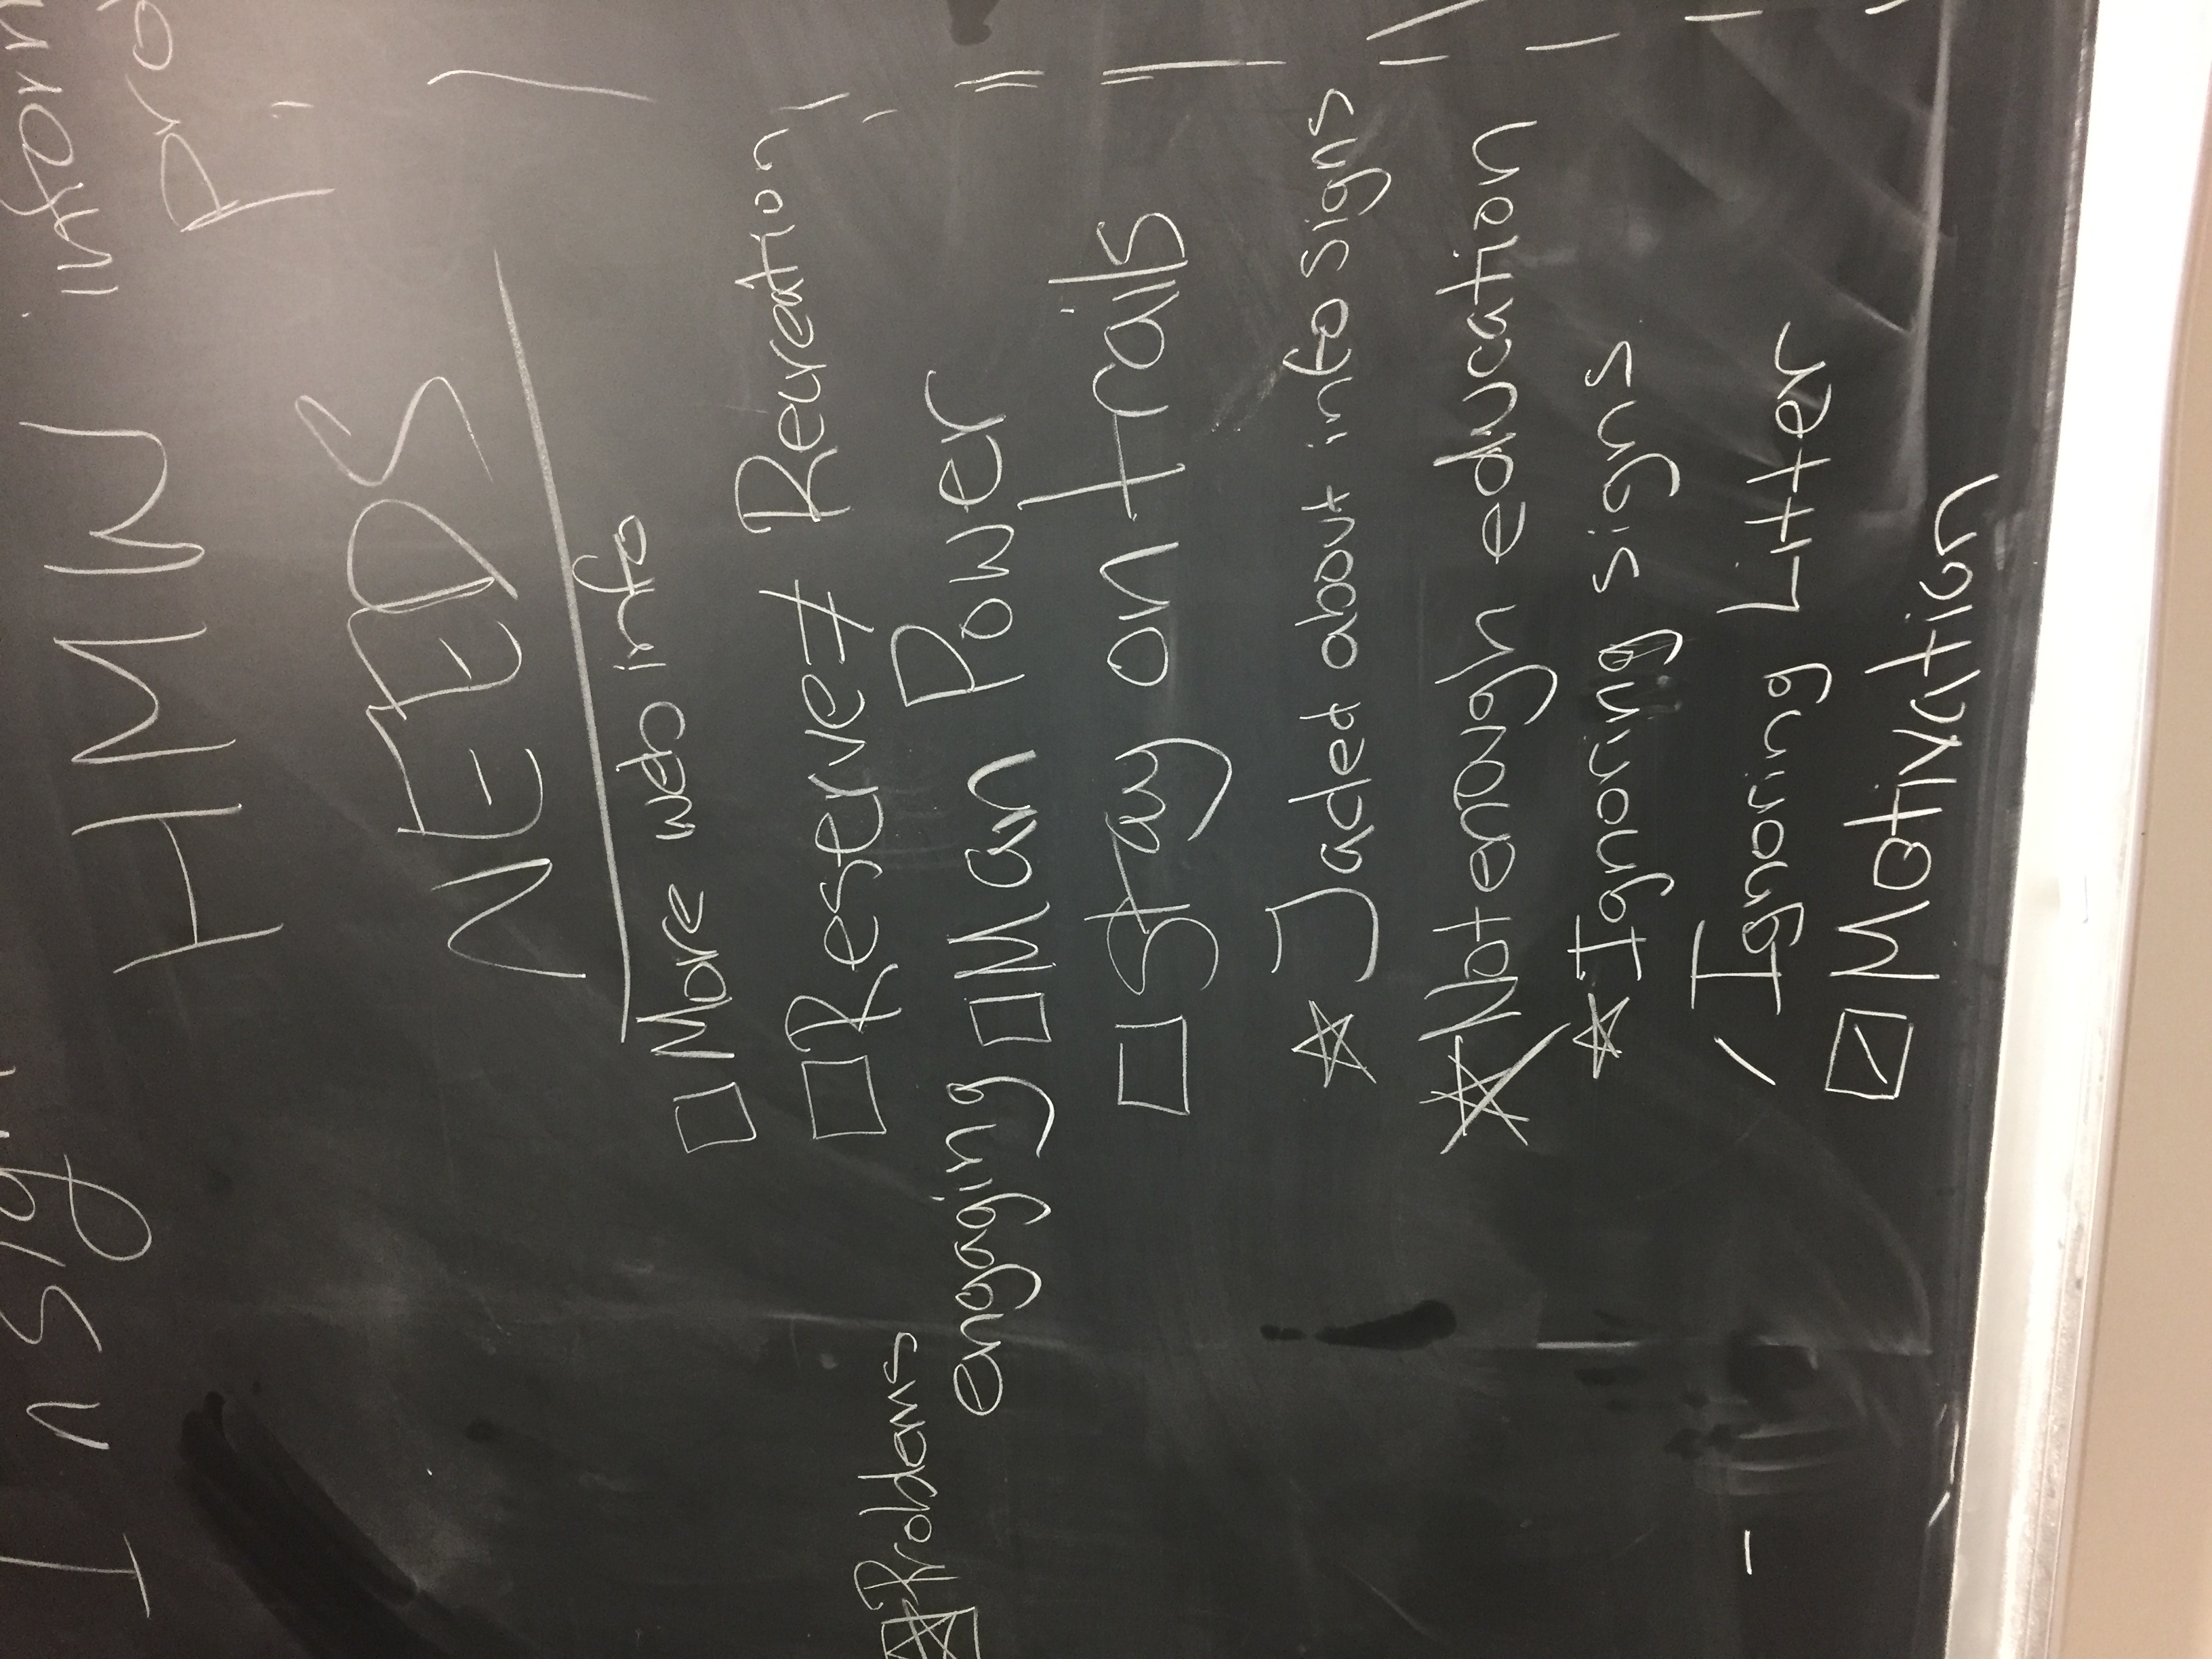 HMW
NEEDS
☐ More web info
☐ Reserve ≠ Recreation
Problems
engaging
☐ Man Power
☐ Stay on trails
☆ Jaded about info signs
☆ Not enough education
☆ Ignoring signs
/ Ignoring Litter
☑ Motivation